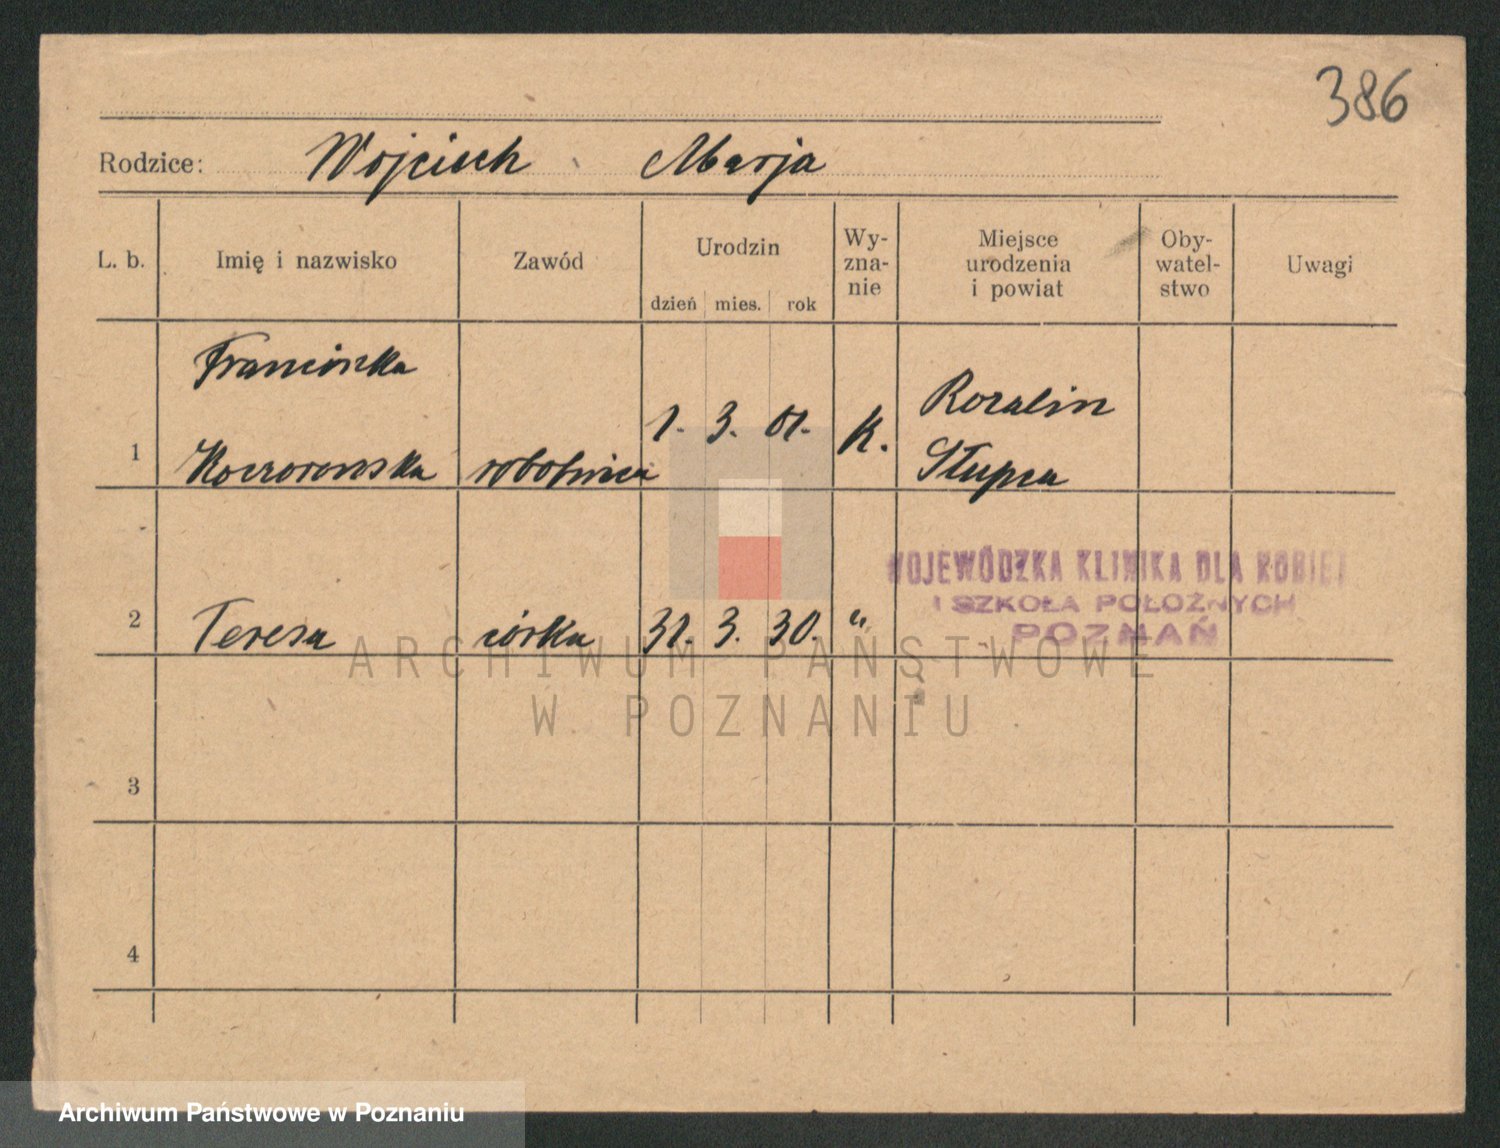 386
Rodzice: Wojciech Marja
L. b. Imię i nazwisko Zawód Urodzin dzień mies. rok Wy-zna-nie Miejsce urodzenia i powiat Oby-watel-stwo Uwagi
Franciszka
Rozalin
1. 3. 01. K.
1 Koczorowska robotnica
Słupca
WOJEWÓDZKA KLINIKA DLA KOBIET
I SZKOŁA POŁOŻNYCH
POZNAŃ
2 Teresa córka 31. 3. 30. "
ARCHIWUM PAŃSTWOWE
W POZNANIU
3
4
Archiwum Państwowe w Poznaniu